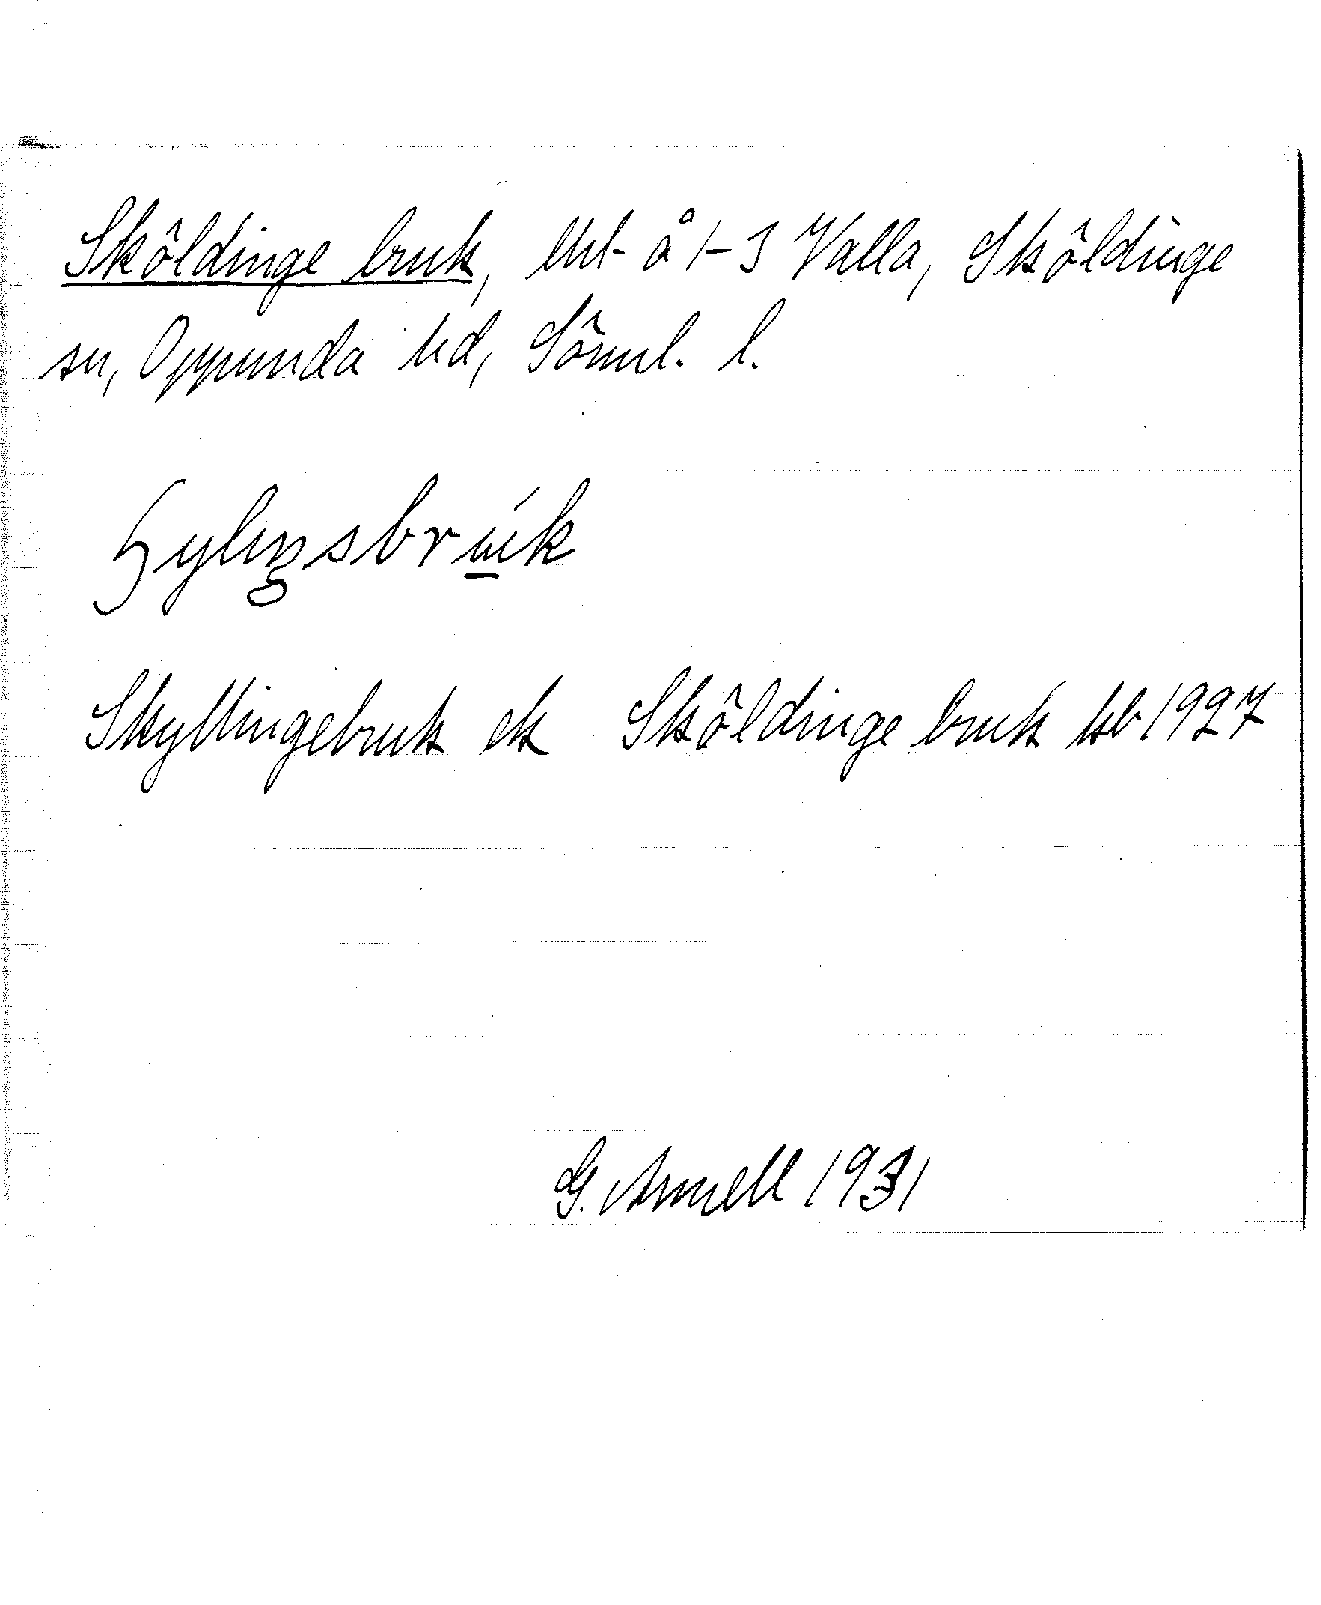 Sköldinge bruk, lht å 1-3 Valla, Sköldinge
sn, Oppunda hd, Söml. l.
Skyllingebruk ek Sköldinge bruk kb 1927
G. Annell 1931